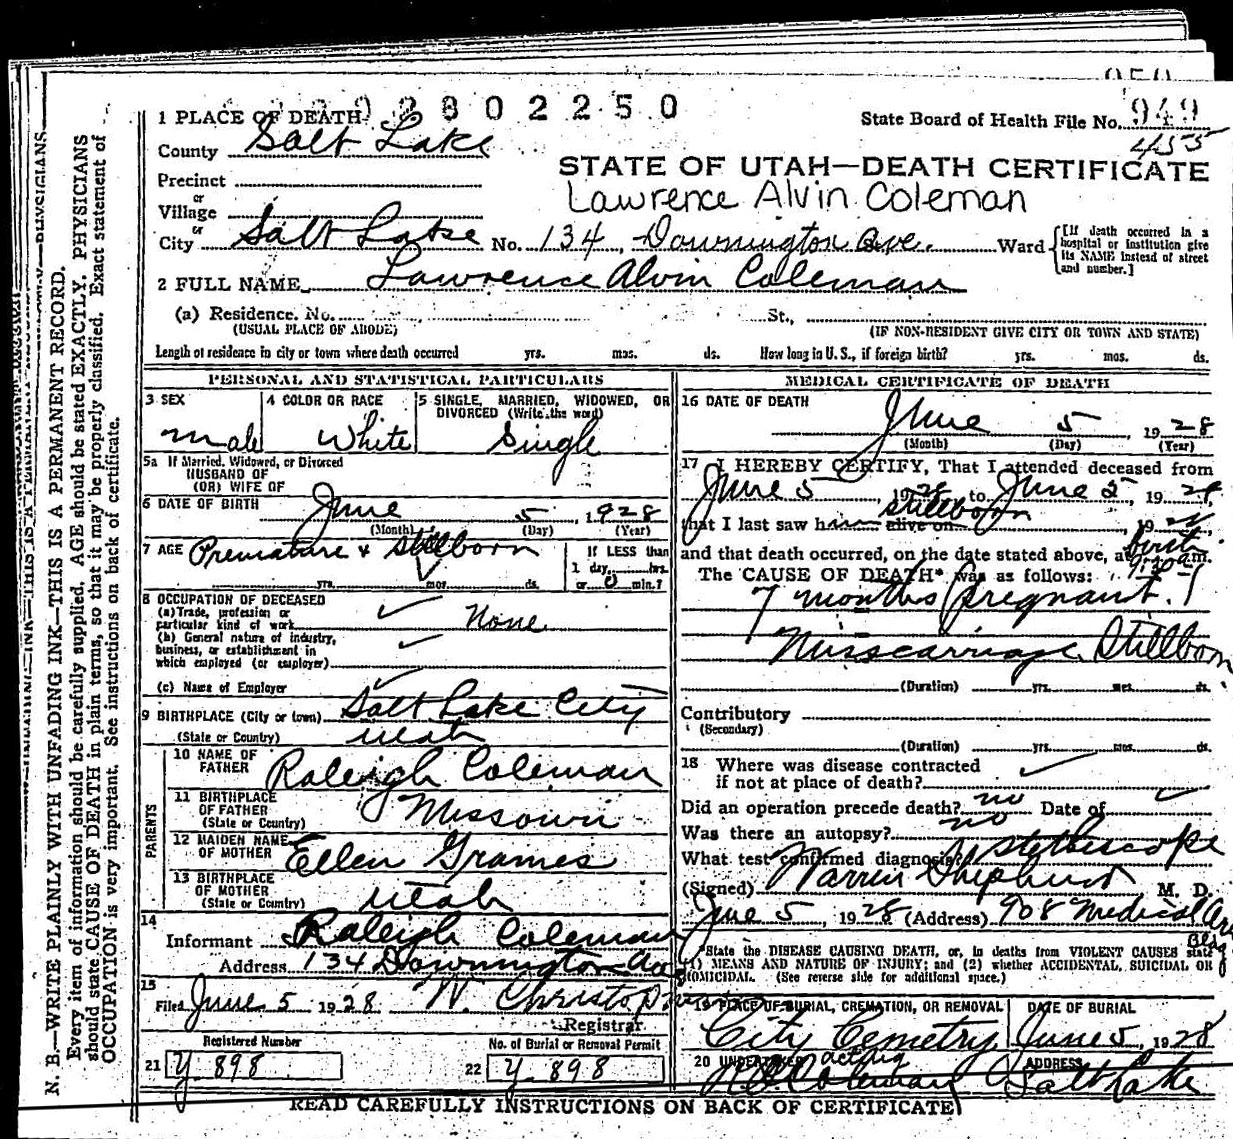 950
2802250
1 PLACE OF DEATH
State Board of Health File No. 949
455
County Salt Lake
STATE OF UTAH—DEATH CERTIFICATE
Precinct
or
Lawrence Alvin Coleman
Village
or
City Salt Lake No. 134, Downington Ave. St., Ward [If death occurred in a hospital or institution give its NAME instead of street and number.]
2 FULL NAME Lawrence Alvin Coleman
(a) Residence. No. St.,
(USUAL PLACE OF ABODE) (IF NON-RESIDENT GIVE CITY OR TOWN AND STATE)
Length of residence in city or town where death occurred yrs. mos. ds. How long in U. S., if foreign birth? yrs. mos. ds.
PERSONAL AND STATISTICAL PARTICULARS
3 SEX 4 COLOR OR RACE 5 SINGLE, MARRIED, WIDOWED, OR DIVORCED (Write the word)
male White Single
5a If Married, Widowed, or Divorced
HUSBAND OF
(OR) WIFE OF
6 DATE OF BIRTH June 5, 1928
(Month) (Day) (Year)
7 AGE Premature & Stillborn If LESS than
1 day, hrs.
yrs. mos. ds. or 0 min.?
8 OCCUPATION OF DECEASED
(a) Trade, profession or
particular kind of work None
(b) General nature of industry,
business, or establishment in
which employed (or employer)
(c) Name of Employer
9 BIRTHPLACE (City or town) Salt Lake City
(State or Country) Utah
PARENTS
10 NAME OF FATHER Raleigh Coleman
11 BIRTHPLACE OF FATHER Missouri
(State or Country)
12 MAIDEN NAME OF MOTHER Ellen Grames
13 BIRTHPLACE OF MOTHER
(State or Country) Utah
14
Informant Raleigh Coleman
Address 134 Downington Ave
15
Filed June 5 1928 W. Christop
Registrar
Registered Number No. of Burial or Removal Permit
21 Y-898 22 Y-898
MEDICAL CERTIFICATE OF DEATH
16 DATE OF DEATH
June 5, 1928
(Month) (Day) (Year)
17 I HEREBY CERTIFY, That I attended deceased from
June 5, 1928 to June 5, 1928
stillborn
that I last saw h alive on , 19
birth
and that death occurred, on the date stated above, at m.
9:30 am
The CAUSE OF DEATH* was as follows:
7 months pregnant.
Misscarriage Stillborn
(Duration) yrs. mos. ds.
Contributory
(Secondary)
(Duration) yrs. mos. ds.
18 Where was disease contracted
if not at place of death?
Did an operation precede death? no Date of
Was there an autopsy? no
What test confirmed diagnosis? Stethescope
(Signed) Warren Shepherd M. D.
June 5, 1928 (Address) 908 Medical Arts
Bldg
*State the DISEASE CAUSING DEATH, or, in deaths from VIOLENT CAUSES state
(1) MEANS AND NATURE OF INJURY; and (2) whether ACCIDENTAL, SUICIDAL OR
HOMICIDAL. (See reverse side for additional space.)
19 PLACE OF BURIAL, CREMATION, OR REMOVAL DATE OF BURIAL
City Cemetry June 5, 1928
20 UNDERTAKER acting ADDRESS
Coleman Salt Lake
READ CAREFULLY INSTRUCTIONS ON BACK OF CERTIFICATE
N. B.—WRITE PLAINLY WITH UNFADING INK—THIS IS A PERMANENT RECORD.
Every item of information should be carefully supplied. AGE should be stated EXACTLY. PHYSICIANS
should state CAUSE OF DEATH in plain terms, so that it may be properly classified. Exact statement of
OCCUPATION is very important. See instructions on back of certificate.